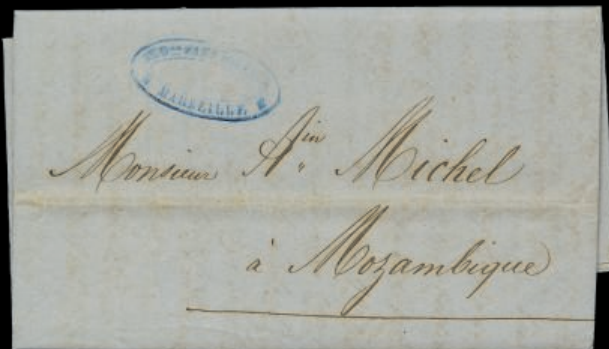 MARSEILLE
Monsieur Ain Michel
à Mozambique